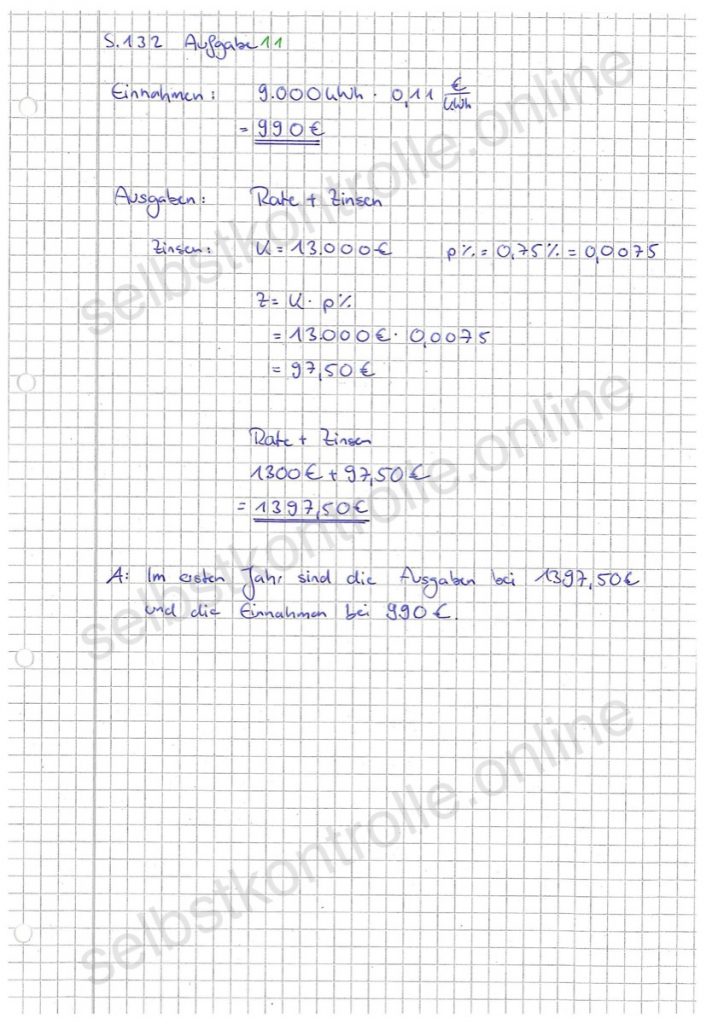 S.132 Aufgabe 11
Einnahmen: 9.000 kWh · 0,11 €/kWh
= 990 €
Ausgaben: Rate + Zinsen
Zinsen: K = 13.000 € p% = 0,75% = 0,0075
Z = K · p%
= 13.000 € · 0,0075
= 97,50 €
Rate + Zinsen
1300 € + 97,50 €
= 1397,50 €
A: Im ersten Jahr sind die Ausgaben bei 1397,50 €
und die Einnahmen bei 990 €.
selbstkontrolle.online
selbstkontrolle.online
selbstkontrolle.online